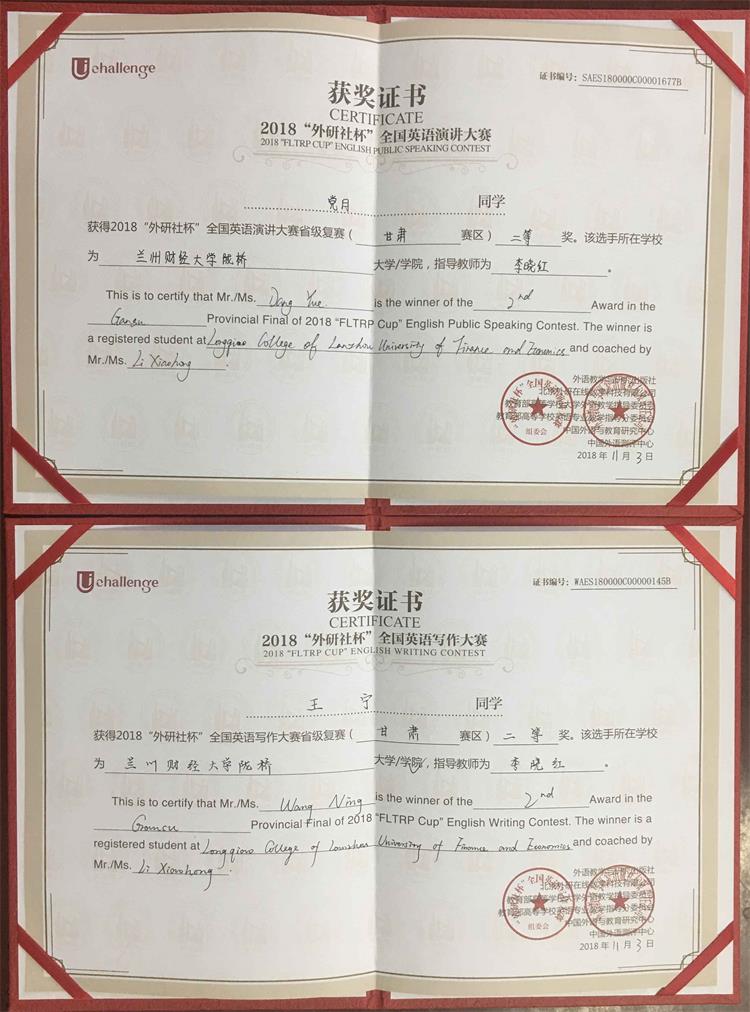 Uchallenge
证书编号： SAES180000C00001677B
获奖证书
CERTIFICATE
2018 “外研社杯” 全国英语演讲大赛
2018 "FLTRP CUP" ENGLISH PUBLIC SPEAKING CONTEST
党月 同学
获得2018 “外研社杯” 全国英语演讲大赛省级复赛（ 甘肃 赛区） 二等 奖。该选手所在学校
为 兰州财经大学陇桥 大学/学院，指导教师为 李晓红 。
This is to certify that Mr./Ms. Dang Yue is the winner of the 2nd Award in the
Gansu Provincial Final of 2018 “FLTRP Cup” English Public Speaking Contest. The winner is
a registered student at Longqiao College of Lanzhou University of Finance and Economics and coached by
Mr./Ms. Li Xiaohong .
外语教学与研究出版社
北京外研在线数字科技有限公司
教育部高等学校大学外语教学指导委员会
教育部高等学校英语专业教学指导分委员会
中国外语与教育研究中心
中国外语测评中心
组委会
2018 年 11 月 3 日
Uchallenge
证书编号： WAES180000C00000145B
获奖证书
CERTIFICATE
2018 “外研社杯” 全国英语写作大赛
2018 "FLTRP CUP" ENGLISH WRITING CONTEST
王宁 同学
获得2018 “外研社杯” 全国英语写作大赛省级复赛（ 甘肃 赛区） 二等 奖。该选手所在学校
为 兰州财经大学陇桥 大学/学院，指导教师为 李晓红 。
This is to certify that Mr./Ms. Wang Ning is the winner of the 2nd Award in the
Gansu Provincial Final of 2018 “FLTRP Cup” English Writing Contest. The winner is a
registered student at Longqiao College of Lanzhou University of Finance and Economics and coached by
Mr./Ms. Li Xiaohong .
外语教学与研究出版社
北京外研在线数字科技有限公司
教育部高等学校大学外语教学指导委员会
教育部高等学校英语专业教学指导分委员会
中国外语与教育研究中心
中国外语测评中心
组委会
2018 年 11 月 3 日